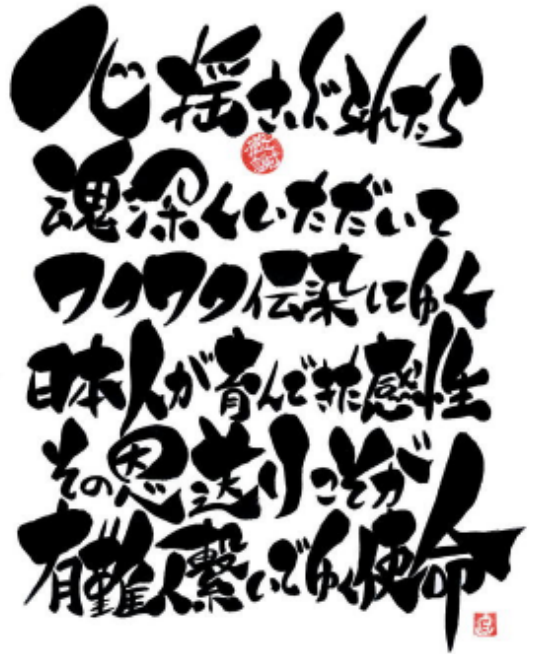 心揺さぶられたら
魂深くいただいて
ワクワク伝染してゆく
日本人が育んできた感性
その恩送りこそが
有難人繋いでゆく使命